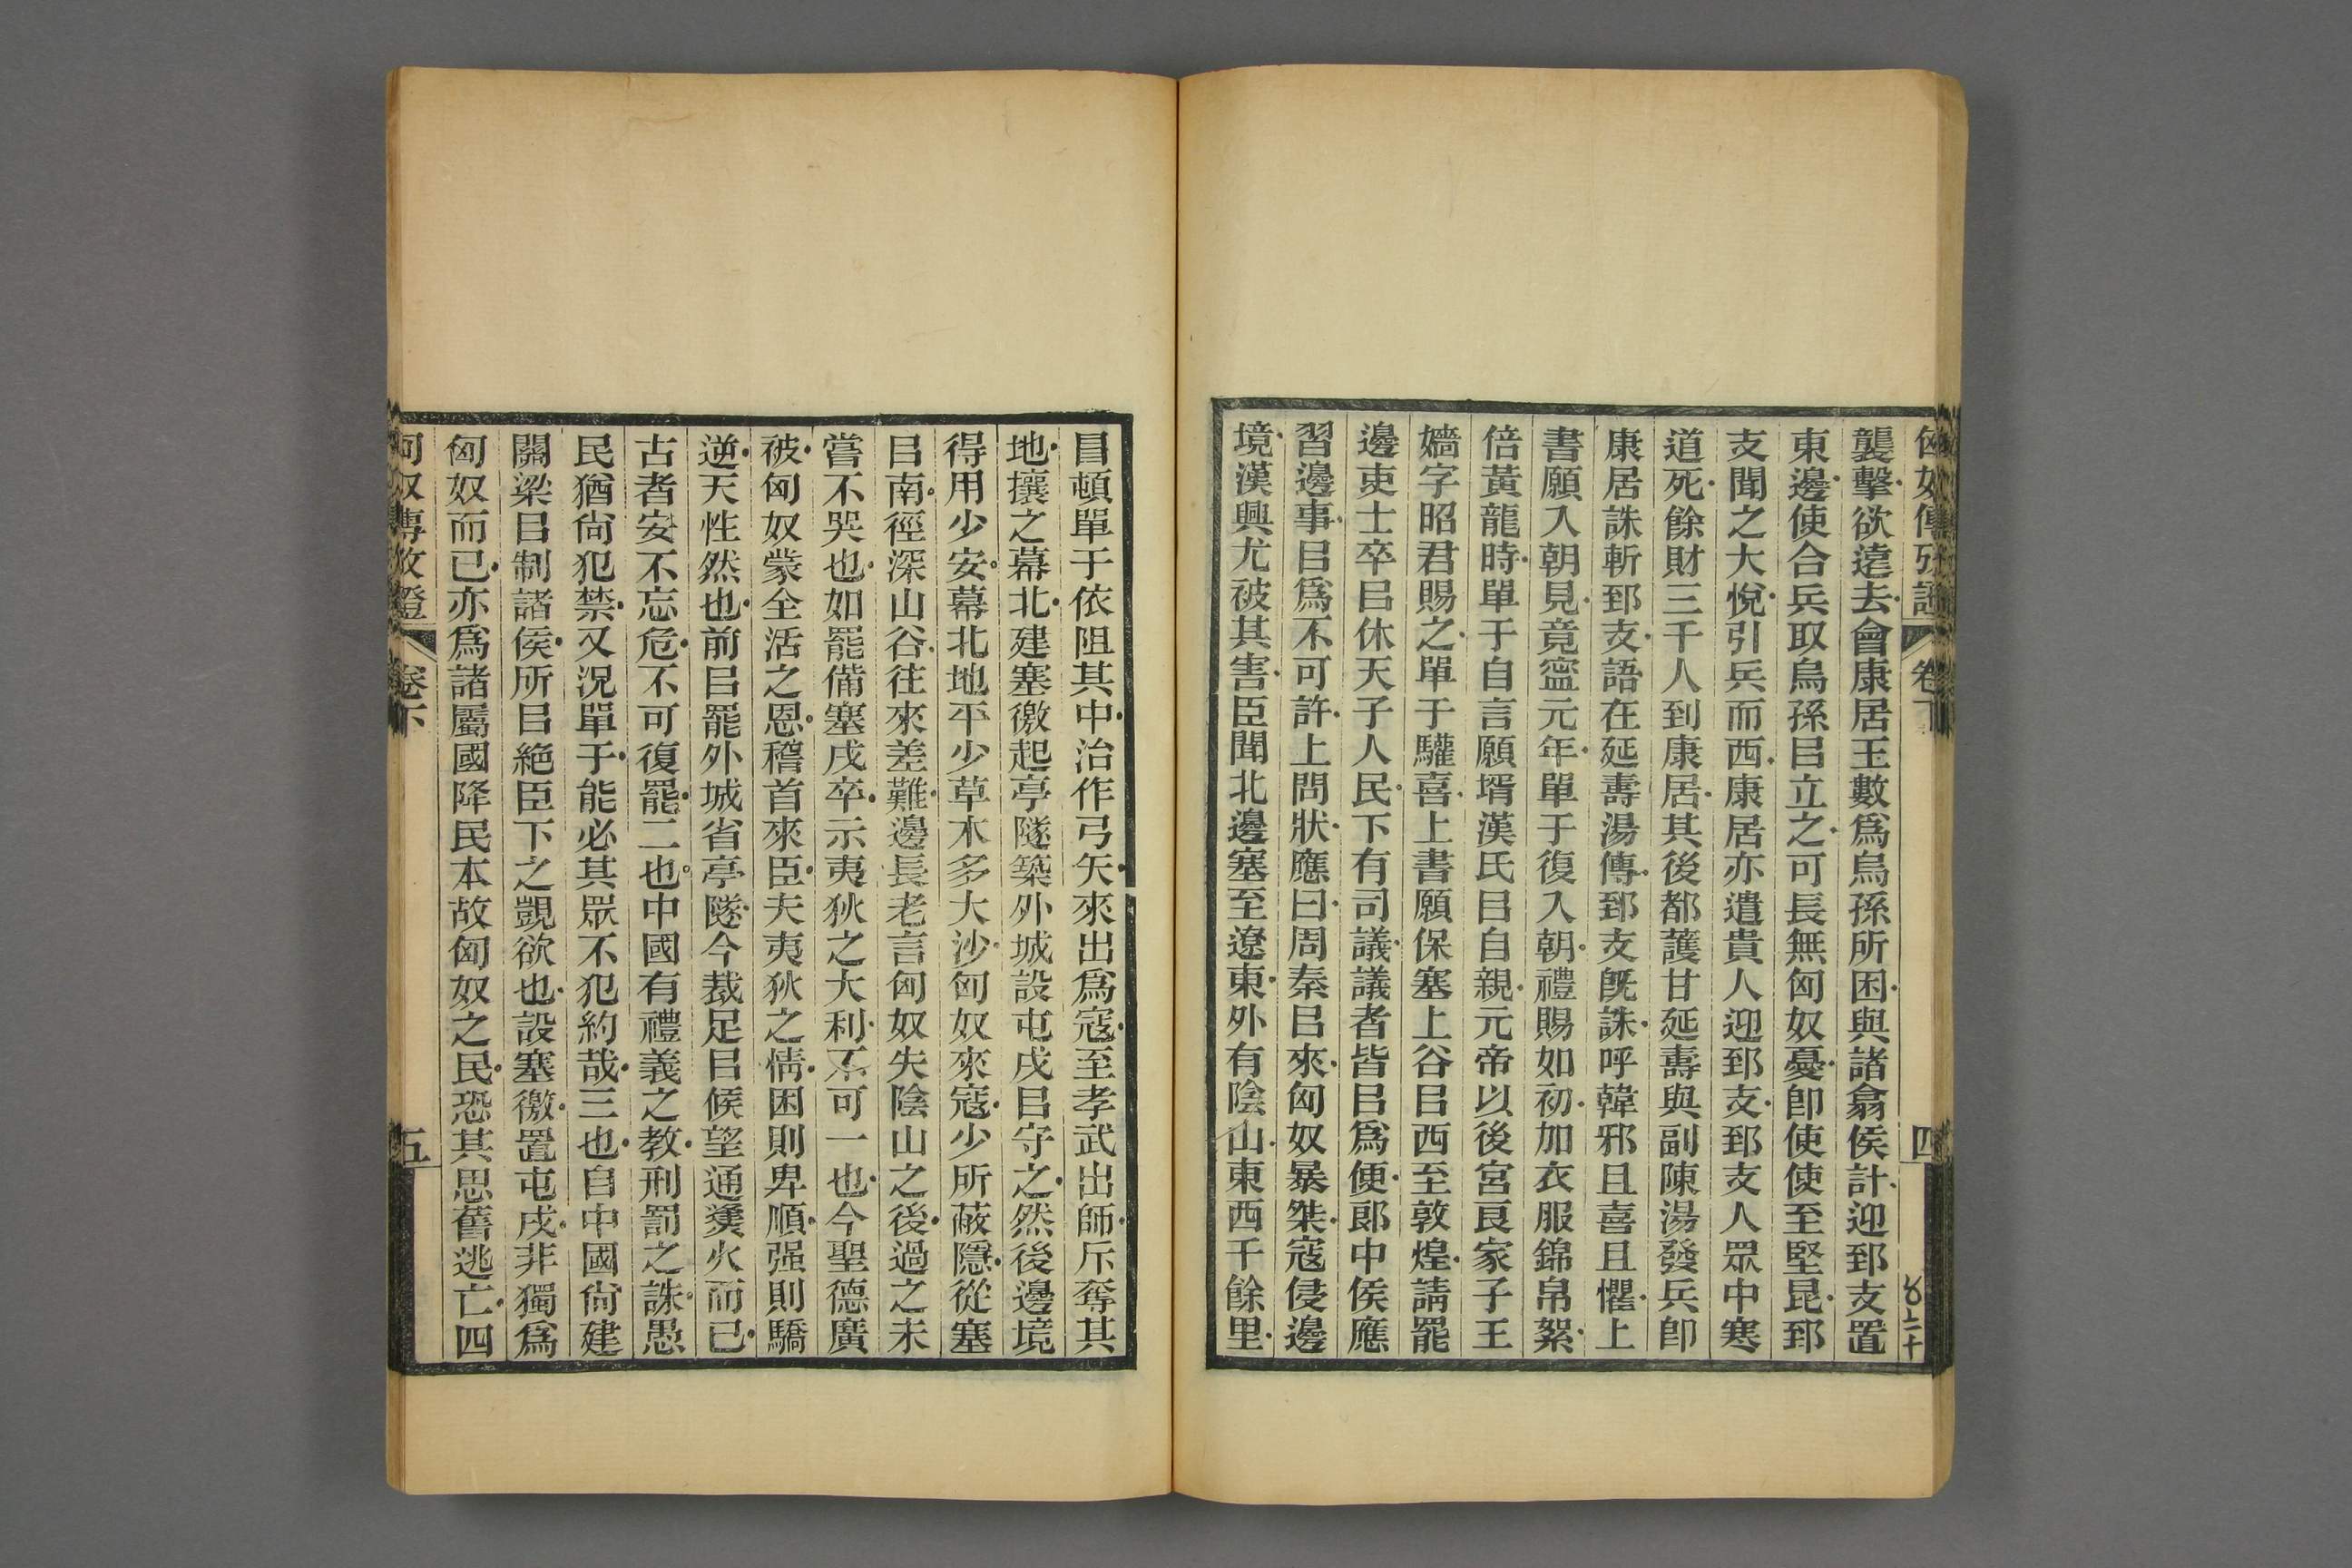 匈奴傳攷證 卷下 四
襲擊欲遠去會康居王數爲烏孫所困與諸翕侯計迎郅支置
東邊使合兵取烏孫㠯立之可長無匈奴憂卽使使至堅昆郅
支聞之大悅引兵而西康居亦遣貴人迎郅支郅支人眾中寒
道死餘財三千人到康居其後都護甘延壽與副陳湯發兵卽
康居誅斬郅支語在延壽湯傳郅支旣誅呼韓邪且喜且懼上
書願入朝見竟寍元年單于復入朝禮賜如初加衣服錦帛絮
倍黃龍時單于自言願壻漢氏㠯自親元帝以後宮良家子王
嬙字昭君賜之單于驩喜上書願保塞上谷㠯西至敦煌請罷
邊吏士卒㠯休天子人民下有司議議者皆㠯爲便郎中侯應
習邊事㠯爲不可許上問狀應曰周秦㠯來匈奴暴桀寇侵邊
境漢興尤被其害臣聞北邊塞至遼東外有陰山東西千餘里
冒頓單于依阻其中治作弓矢來出爲寇至孝武出師斥奪其
地攘之幕北建塞徼起亭隧築外城設屯戍㠯守之然後邊境
得用少安幕北地平少草木多大沙匈奴來寇少所蔽隱從塞
㠯南徑深山谷往來差難邊長老言匈奴失陰山之後過之未
嘗不哭也如罷備塞戍卒示夷狄之大利不可一也今聖德廣
被匈奴蒙全活之恩稽首來臣夫夷狄之情困則卑順强則驕
逆天性然也前㠯罷外城省亭隧今裁足㠯候望通㷭火而已
古者安不忘危不可復罷二也中國有禮義之教刑罰之誅愚
民猶尙犯禁又況單于能必其眾不犯約哉三也自中國尙建
關梁㠯制諸侯所㠯絕臣下之覬欲也設塞徼置屯戍非獨爲
匈奴而已亦爲諸屬國降民本故匈奴之民恐其思舊逃亡四
匈奴傳攷證 卷下 五